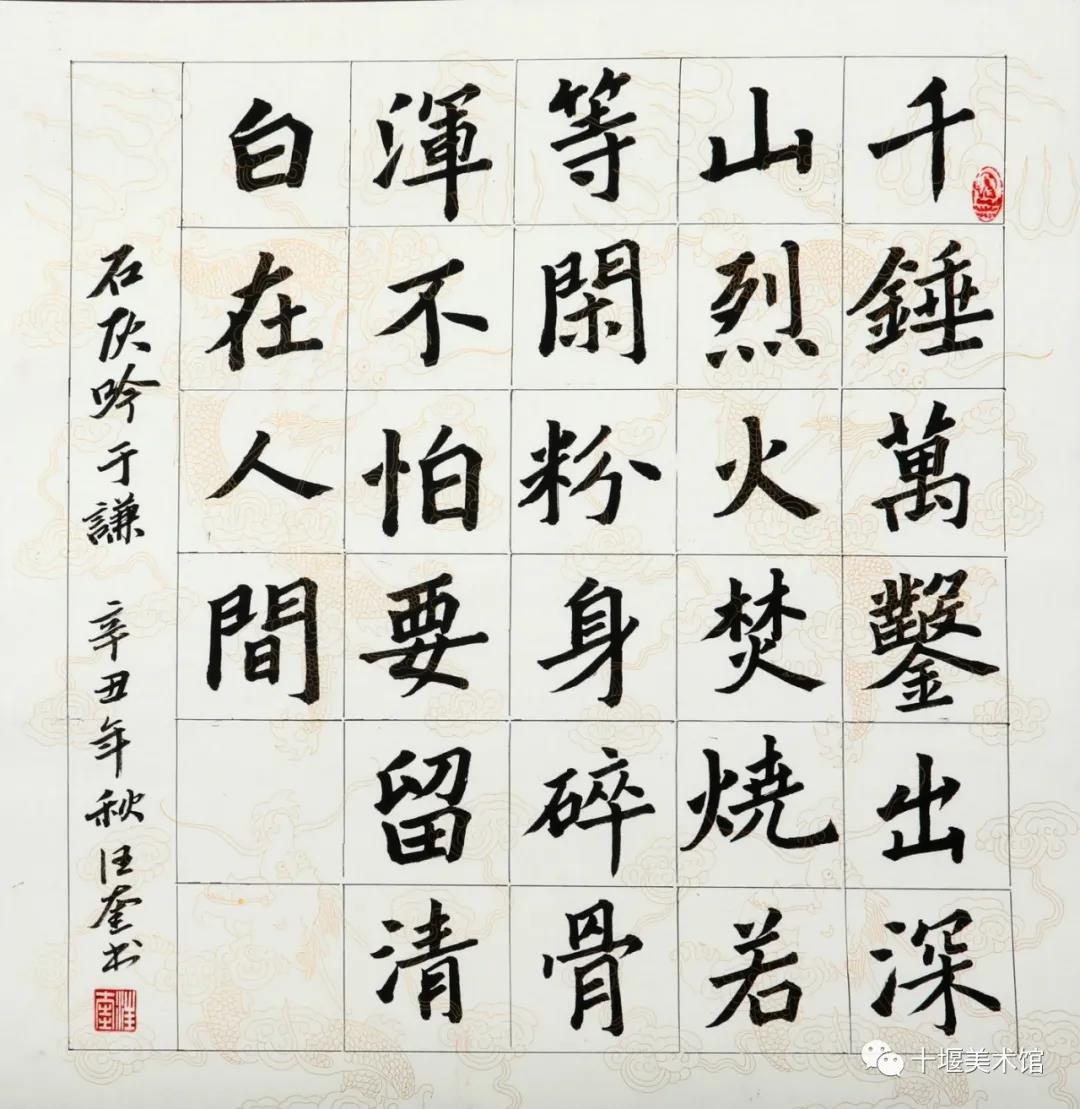 千錘萬鑿出深
山烈火焚燒若
等閑粉身碎骨
渾不怕要留清
白在人間
石灰吟于謙 辛丑年秋汪奎书
汪奎
十堰美术馆